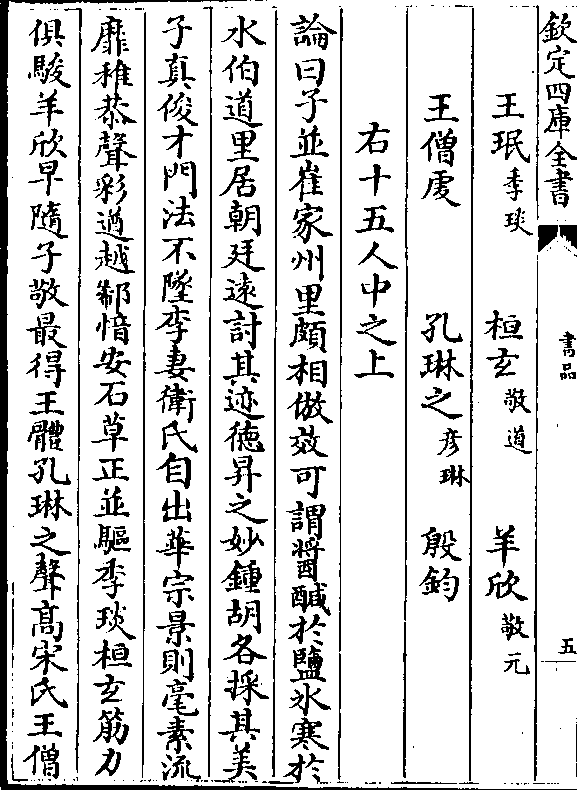 欽定四庫全書
書品
五
王珉季琰 桓玄敬道 羊欣敬元
王僧虔 孔琳之彦琳 殷鈞
右十五人中之上
論曰子並崔家州里頗相倣效可謂醬醎於鹽氷寒於
水伯道里居朝廷遠討其迹徳昇之妙鍾胡各採其美
子真俊才門法不墜李妻衛氏自出華宗景則毫素流
靡稚恭聲彩遒越郗愔安石草正並驅季琰桓玄筋力
俱駿羊欣早隨子敬最得王體孔琳之聲髙宋氏王僧